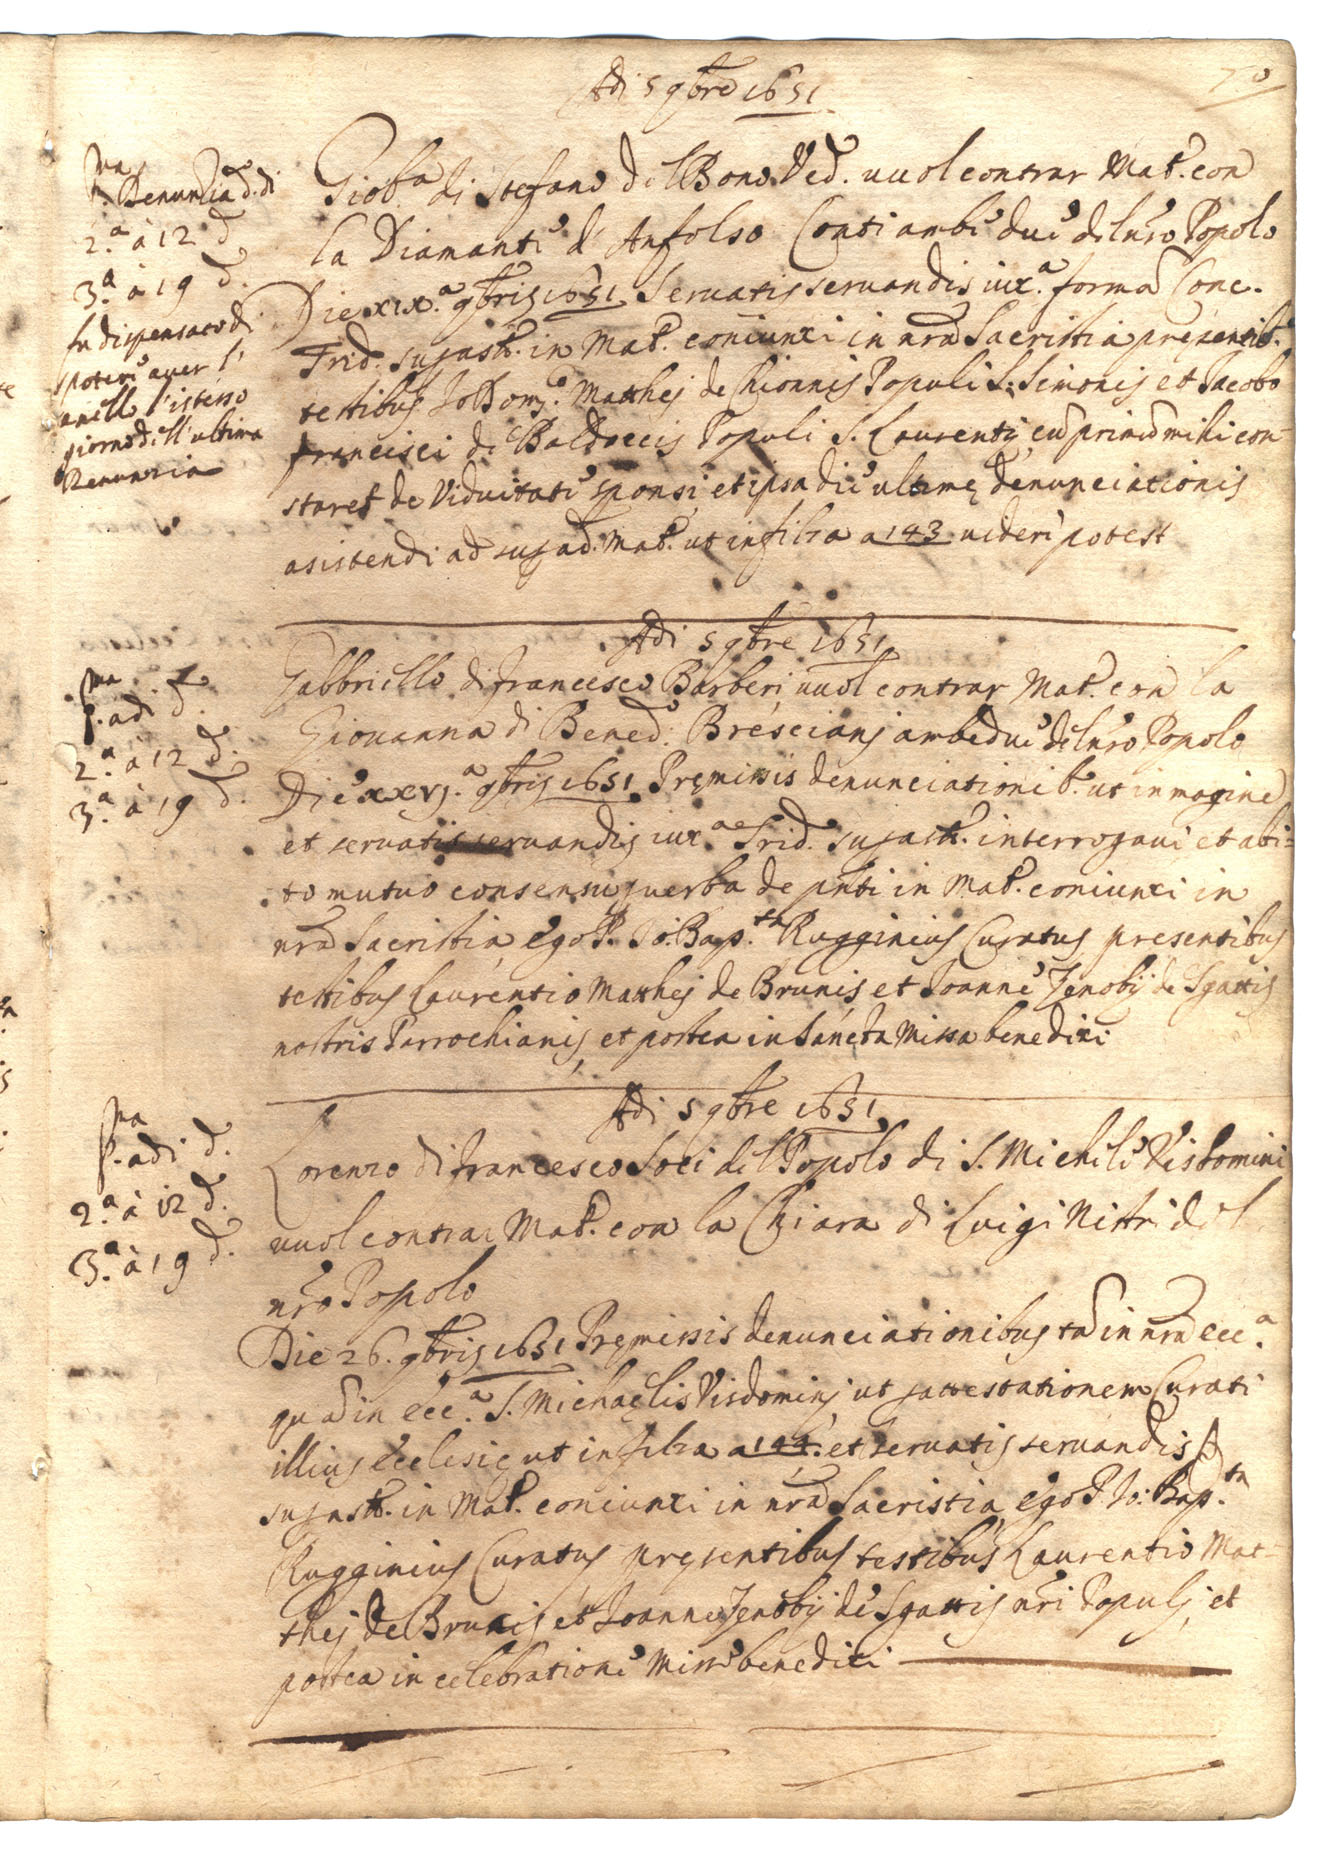 70
Adi 5 9bre 1651
p.ma Denunzia d. dì
2.a à 12 d.
3.a à 19 d.
fu dispensato di
poter aver l'
anello l'istesso
giorno dell'ultima
Denunzia
Giob.a di Stefano del Bono Ved. vuol contrar Mat.o con
la Diamante d' Anfolso Conti ambi due del nro Popolo
Die xix.a 9bris 1651 Servatis servandis iux.a formã Conc.
Trid. sugastt. in Mat. coniunxi in nrã Sacristia presentib.
testibus Jo Dom.co Matthej de Chionnis Populi S. Simonis et Jacobo
Francisci de Baldoccis Populi S. Laurentij cũ primũ mihi con-
staret de Viduitate sponsi et ipsa die ultimę denunciationis
asistendi ad sugad. Mat. ut in filza a 143 videri potest
Adi 5 9bre 1651
p.ma adi d.
2.a à 12 d.
3.a à 19 d.
Gabbriello di Francesco Barberi vuol contrar Mat.o con la
Giovanna di Bened.o Brescianj ambedue del nro Popolo
Die xxvj.a 9bris 1651 Pręmissis denunciationib. ut in magine
et servatis servandis iux.a Trid. sugastt. interrogavi et abi=
to mutuo consensu p verba de pnti in Mat. coniunxi in
nrã Sacristia ego P. Jo: Bap.ta Rugginius Curatus presentibus
testibus Laurentio Matthej de Brunis et Joanne Zenobij de Sgattis
nostris Parrochianis, et postea in Sancta Missa benedixi
Adi 5 9bre 1651
p.ma adi d.
2.a à 12 d.
3.a à 19 d.
Lorenzo di Francesco Soci del Popolo di S. Michele Visdomini
vuol contrar Mat.o con la Chiara di Luigi Nistri del
nro Popolo
Die 26. 9bris 1651 Pręmissis denunciationibus tã in nrã ecc.a
quã in ecc.a S. Michaęlis Visdominj ut p attestationem Curati
illius Ecclesię ut in filza a 144. et servatis servandis
sugastt. in Mat. coniunxi in nrã Sacristia ego P. Jo: Bap.ta
Rugginius Curatus pręsentibus testibus Laurentio Mat=
thej de Brunis et Joanne Zenobij de Sgattis nri Populj, et
postea in celebratione Missę benedixi